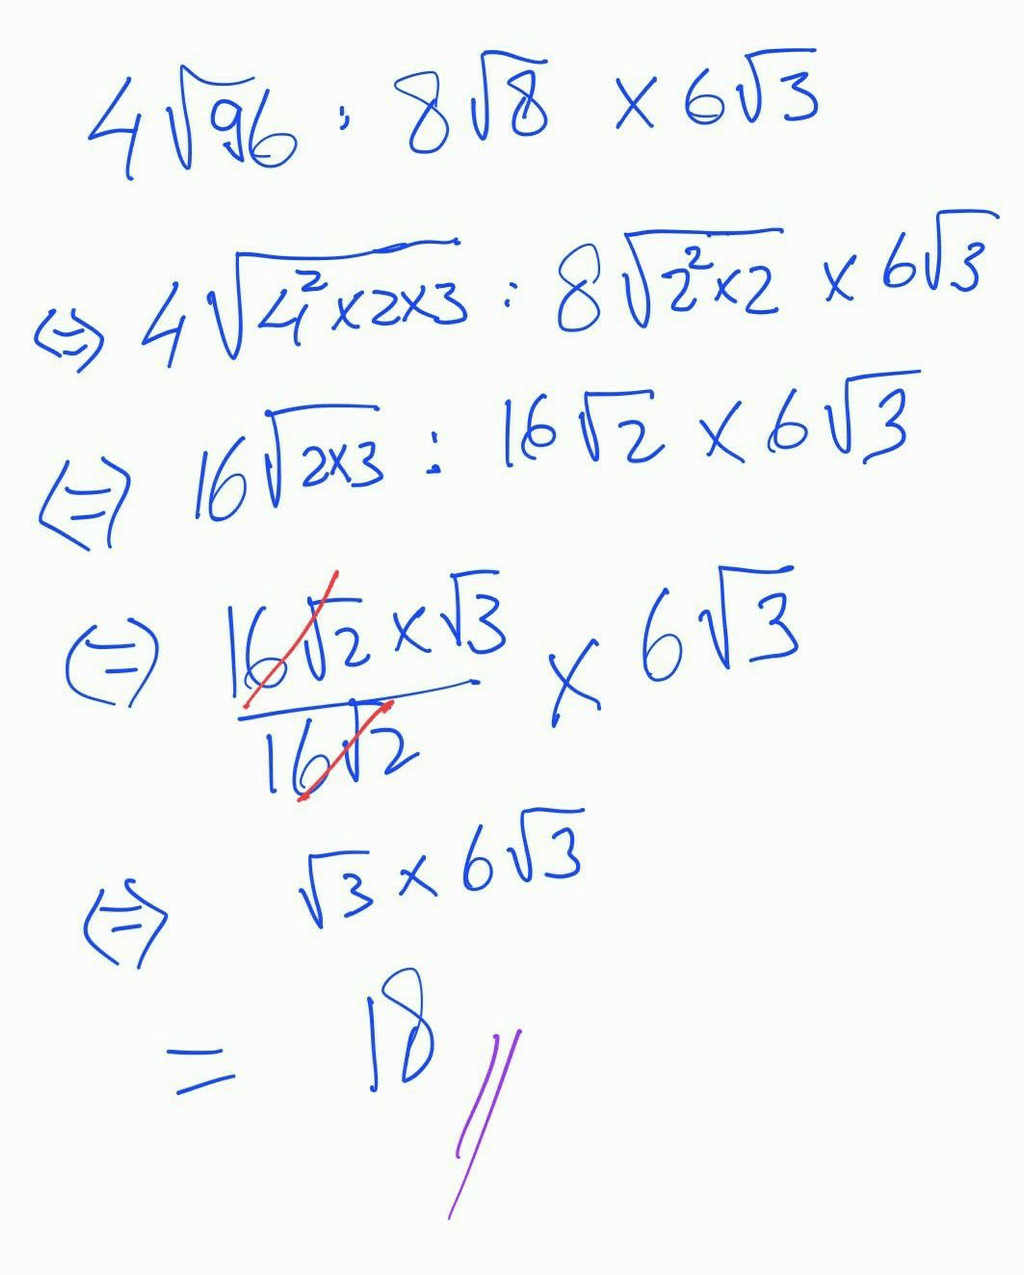 4√96 : 8√8 × 6√3
⇔ 4√4²×2×3 : 8√2²×2 × 6√3
⇔ 16√2×3 : 16√2 × 6√3
⇔ 16√2 × √3 / 16√2 × 6√3
⇔ √3 × 6√3
= 18 //